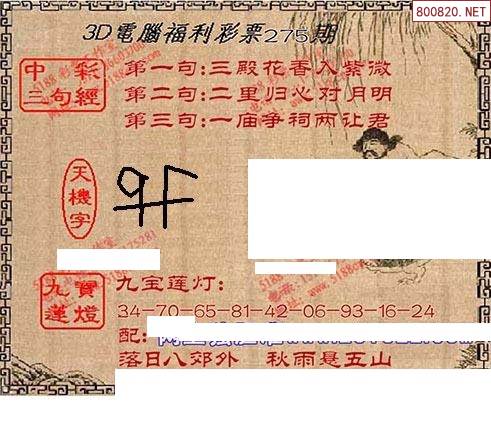 800820.NET
3D電腦福利彩票275期
中彩
三句經
第一句:三殿花香入紫微
第二句:二里归心对月明
第三句:一庙争祠两让君
天機字
九寶
蓮燈
九宝莲灯:
34-70-65-81-42-06-93-16-24
配:
落日八郊外 秋雨是五山